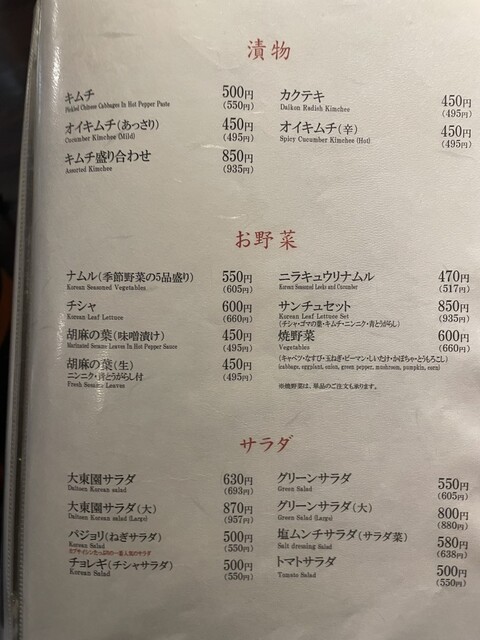 漬物
キムチ 500円
Pickled Chinese Cabbages In Hot Pepper Paste (550円)
オイキムチ(あっさり) 450円
Cucumber Kimchee (Mild) (495円)
キムチ盛り合わせ 850円
Assorted Kimchee (935円)
カクテキ 450円
Daikon Radish Kimchee (495円)
オイキムチ(辛) 450円
Spicy Cucumber Kimchee (Hot) (495円)
お野菜
ナムル(季節野菜の5品盛り) 550円
Korean Seasoned Vegetables (605円)
チシャ 600円
Korean Leaf Lettuce (660円)
胡麻の葉(味噌漬け) 450円
Marinated Sesame Leaves In Hot Pepper Sauce (495円)
胡麻の葉(生) 450円
ニンニク・青とうがらし付 (495円)
Fresh Sesame Leaves
ニラキュウリナムル 470円
Korean Seasoned Leeks and Cucumber (517円)
サンチュセット 850円
Korean Leaf Lettuce Set (935円)
(チシャ・ゴマの葉・キムチ・ニンニク・青とうがらし)
焼野菜 600円
Vegetables (660円)
(キャベツ・なすび・玉ねぎ・ピーマン・しいたけ・かぼちゃ・とうもろこし)
(cabbage, eggplant, onion, green pepper, mushroom, pumpkin, corn)
※焼野菜は、単品のご注文も承ります。
サラダ
大東園サラダ 630円
Daitoen Korean salad (693円)
大東園サラダ(大) 870円
Daitoen Korean salad (Large) (957円)
パジョリ(ねぎサラダ) 500円
Korean Salad (550円)
カプサイシンたっぷりの一番人気のサラダ
チョレギ(チシャサラダ) 500円
Korean Salad (550円)
グリーンサラダ 550円
Green Salad (605円)
グリーンサラダ(大) 800円
Green Salad (Large) (880円)
塩ムンチサラダ(サラダ菜) 580円
Salt dressing Salad (638円)
トマトサラダ 500円
Tomato Salad (550円)